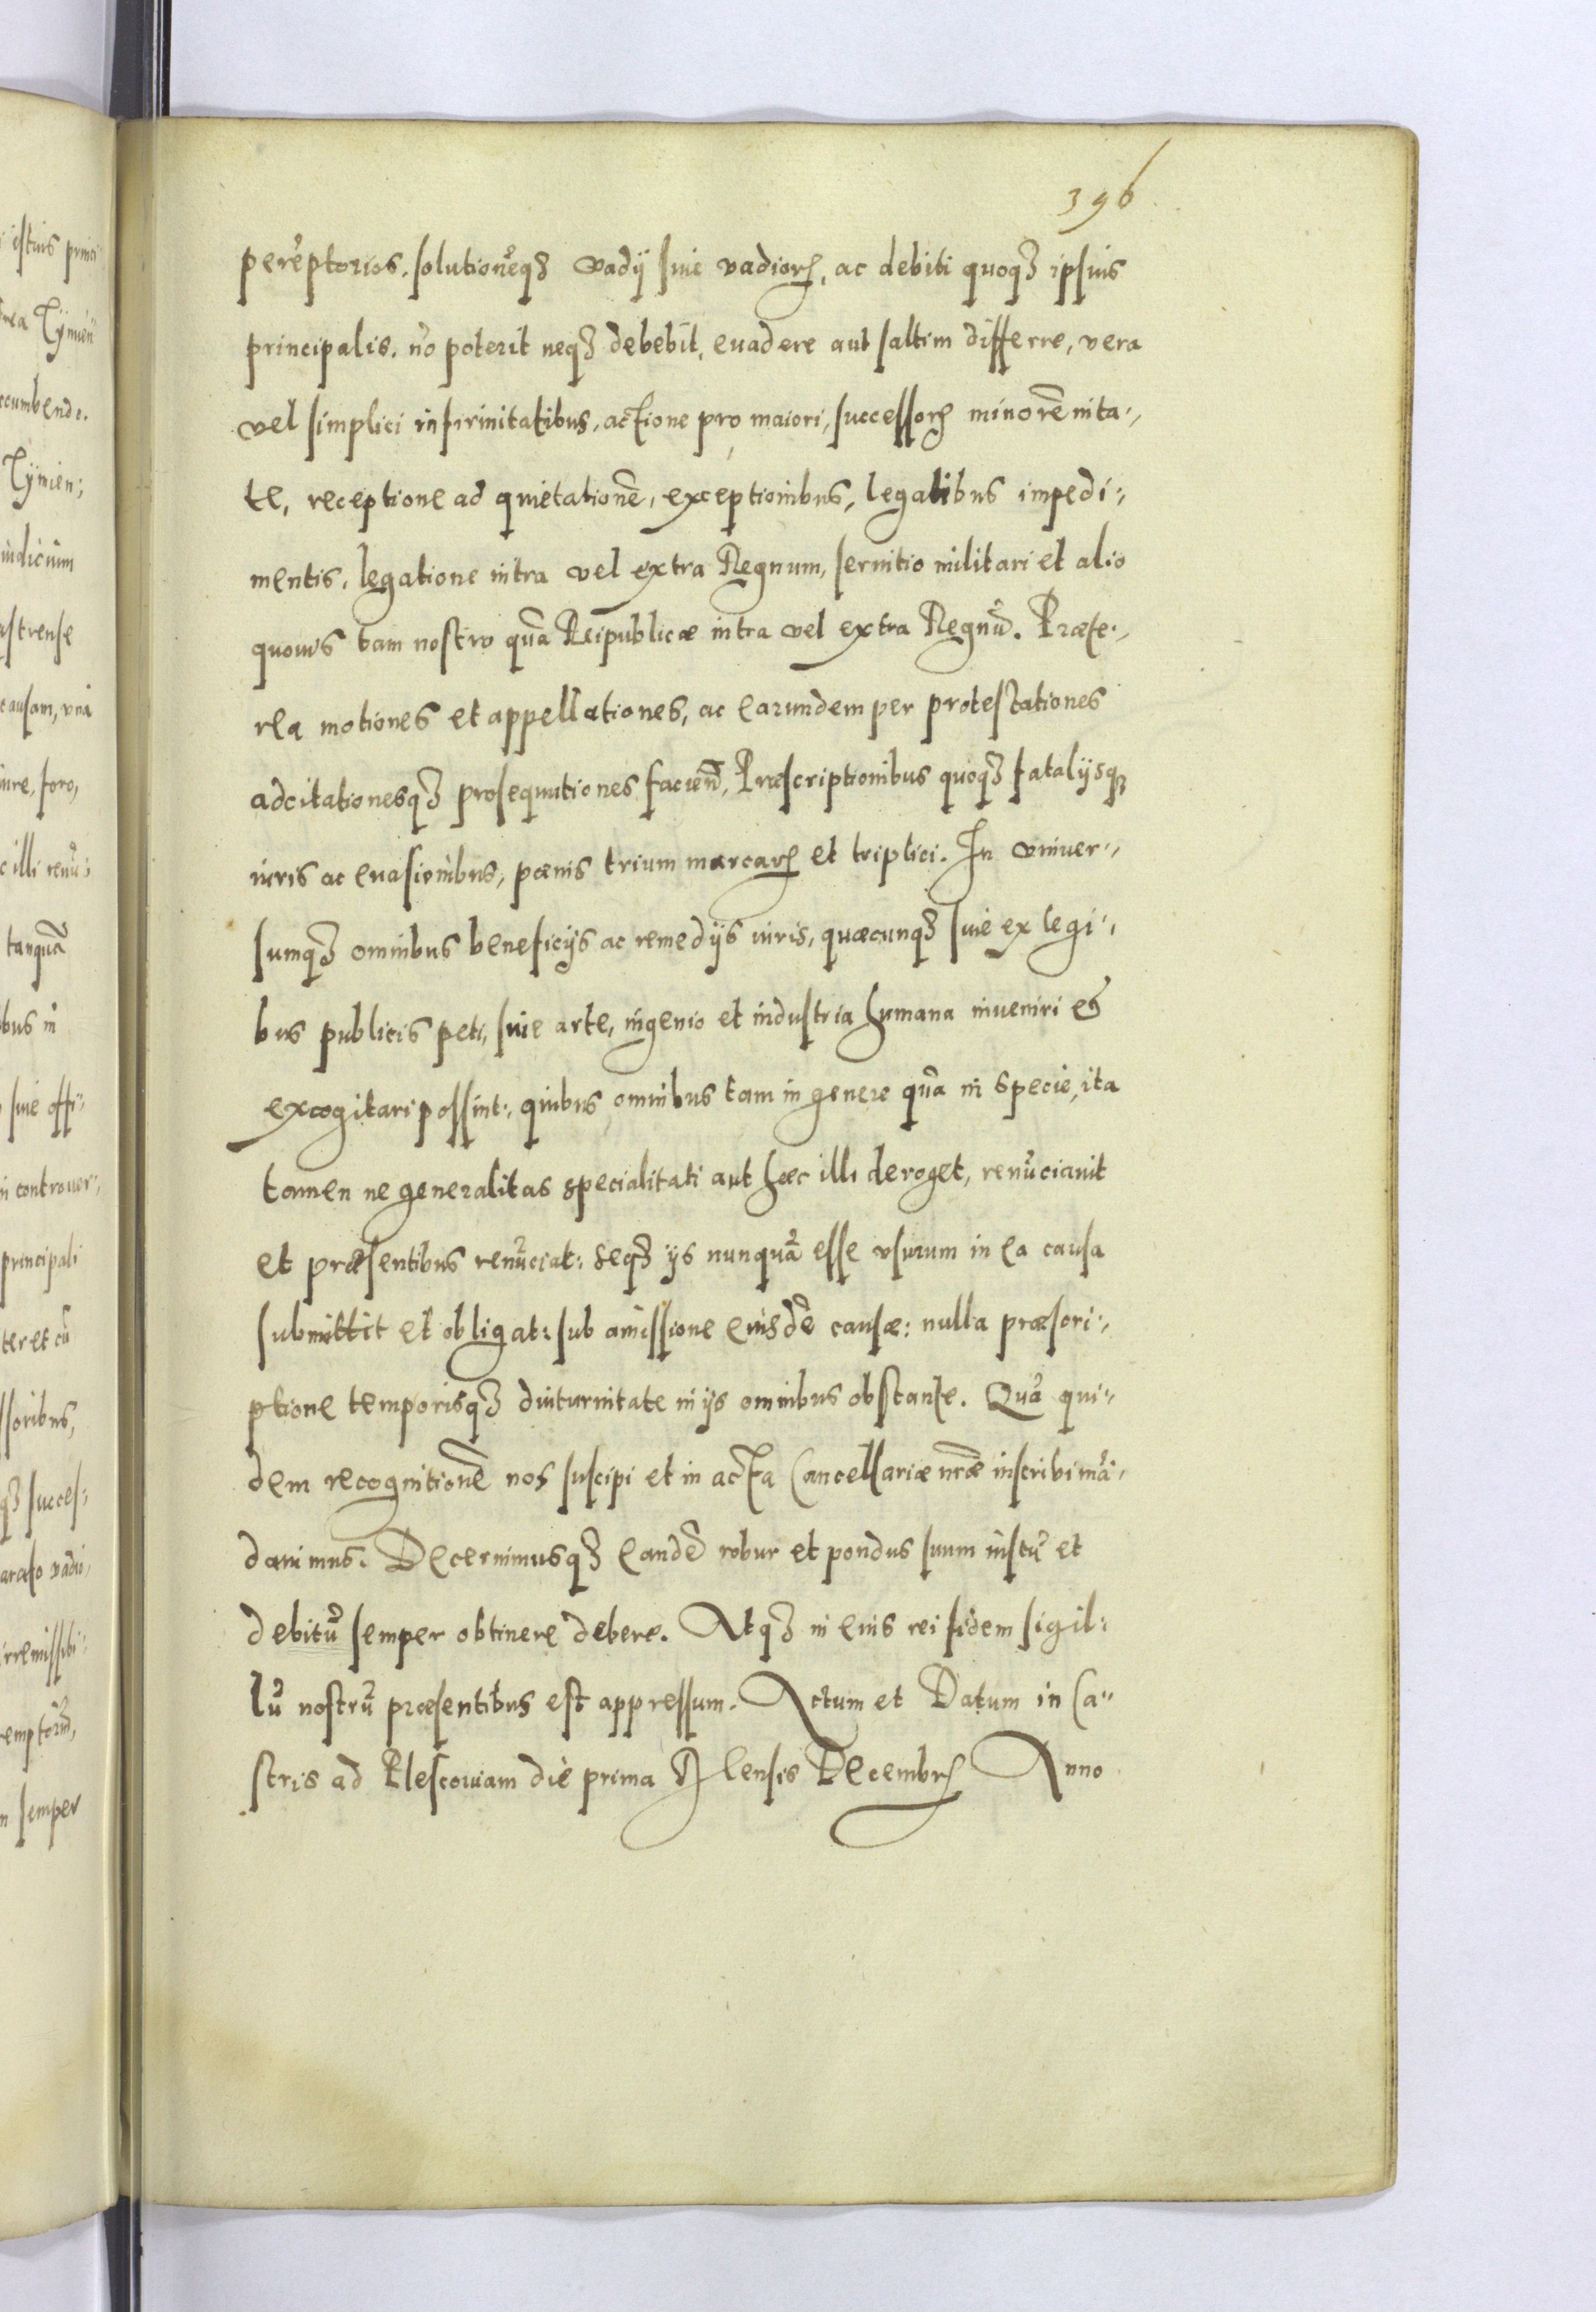 396
perēptorios, solutionēqȝ vadÿ siue vadiorꝝ, ac debiti quoqȝ ipsius
principalis, nō poterit neqȝ debebit, euadere aut saltim differre, vera
vel simplici infirmitatibus, actione pro maiori, successorꝝ minorēnita-
te, receptione ad quietationē, exceptionibus, legalibus impedi:
mentis, legatione intra vel extra Regnum, seruitio militari et alio
quouis tam nostro quā Reipublicæ intra vel extra Regnū. Præte-
rea motiones et appellationes, ac earundem per protestationes
adcitationesqȝ prosequutiones faciend̄, Præscriptionibus quoqȝ fatalÿsqȝ
iuris ac euasionibus, pœnis trium marcarꝝ et triplici. In vniuer-
sumqȝ omnibus beneficÿs ac remedÿs iuris, quæcunqȝ siue ex legi-
bus publicis peti, siue arte, ingenio et industria humana inueniri et
excogitari possint: quibus omnibus tam in genere quā in specie, ita
tamen ne generalitas specialitati aut hæc illi deroget, renūciauit
et præsentibus renūciat: seqȝ ÿs nunquā esse vsurum in ea causa
submittit et obligat: sub amissione eiusdē causæ: nulla præscri-
ptione temporisqȝ diuturnitate in ÿs omnibus obstante. Quā qui-
dem recognitionē nos suscipi et in acta Cancellariæ nr̄æ inscribi mā-
dauimus. Decernimusqȝ eandē robur et pondus suum iustū et
debitū semper obtinere debere. Atqȝ in eius rei fidem sigil:
lū nostrū præsentibus est appressum. Actum et Datum in Ca-
stris ad Plescouiam die prima Mensis Decembrꝭ Anno
istius princi
Tÿnien
ccumbende.
Tÿnien:
iudicium
astrense
causam, vna
iure, foro,
c illi renū:
tanquā
bus in
siue offi-
in controuer-
principali
ter et cū
ssoribus,
qȝ succes:
arato vadio,
irremissibi-
n semper